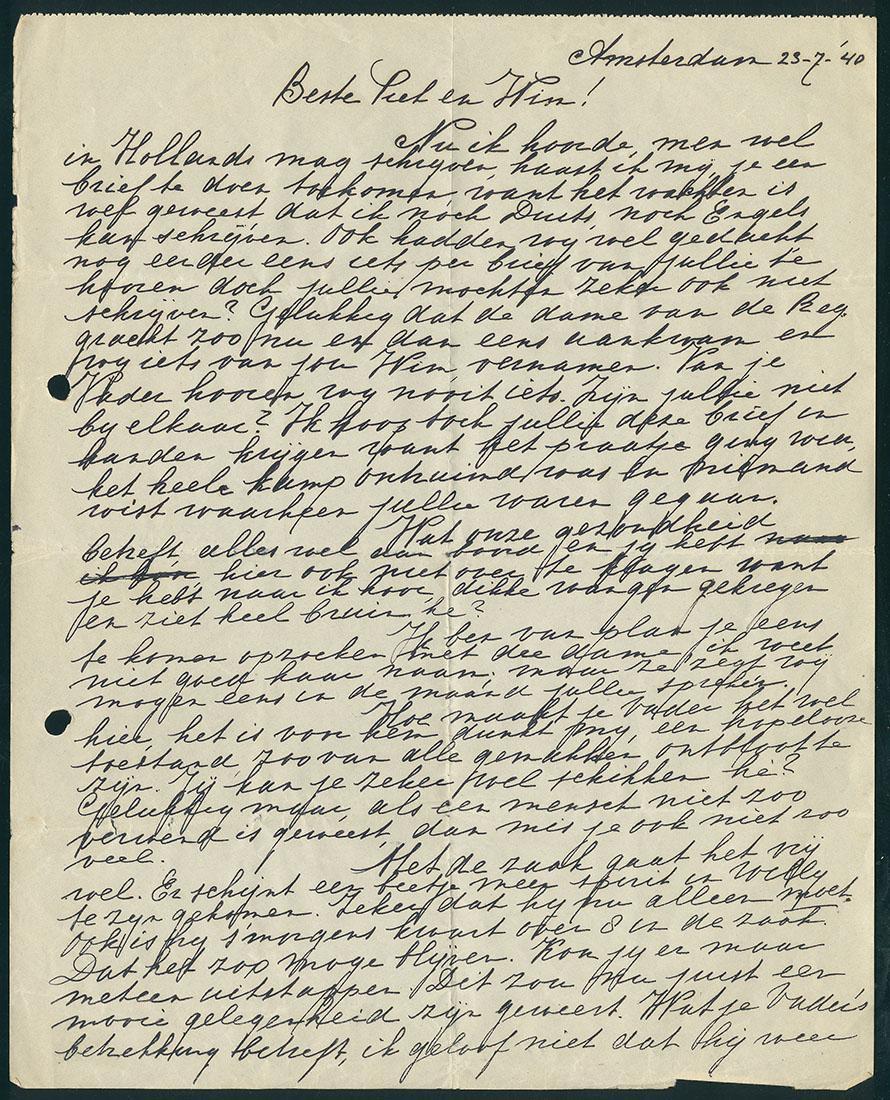 Amsterdam 23-7-'40
Beste Piet en Wim!
Nu ik hoorde, men wel
in Hollands mag schrijven, haast ik mij, je een
brief te doen toekomen, want het wachten is
wel geweest dat ik noch Duits noch Engels
kan schrijven. Ook hadden wij wel gedacht
nog eerder eens iets per brief van jullie te
hooren doch jullie mochten zeker ook niet
schrijven? Gelukkig dat de dame van de Reg.
gracht zoo nu en dan eens aankwam en
wij iets van jou Wim vernamen. Van je
Vader hooren wij nooit iets. Zijn jullie niet
bij elkaar? Ik hoop toch jullie deze brief in
handen krijgen want het praatje ging weer,
het heele kamp ontruimd was en niemand
wist waarheen jullie waren gegaan.
Wat onze gezondheid
betreft, alles wel aan boord en jij hebt
hier ook niet over te klagen want
je hebt naar ik hoor, dikke wangen gekregen
en ziet heel bruin, hè?
Ik ben van plan je eens
te komen opzoeken met die dame, ik weet
niet goed haar naam, maar ze zegt wij
mogen eens in de maand jullie spreken.
Hoe maakt je Vader het wel
hier, het is voor hem dunkt mij, een hopelooze
toestand, zoo van alle gemakken ontbloot te
zijn. Jij kan je zeker wel schikken hè?
Gelukkig maar, als een mensch niet zoo
verwend is geweest, dan mis je ook niet zoo
veel.
Met de zaak gaat het vrij
wel. Er schijnt een beetje meer spirit in Willy
te zijn gekomen. Zeker dat hij nu alleen moet.
Ook is hij 's morgens kwart over 8 in de zaak.
Dat het zoo moge blijven. Kon jij er maar
meteen uitstappen. Dit zou nu juist een
mooie gelegenheid zijn geweest. Wat je Vader's
betrekking betreft, ik geloof niet dat hij weer